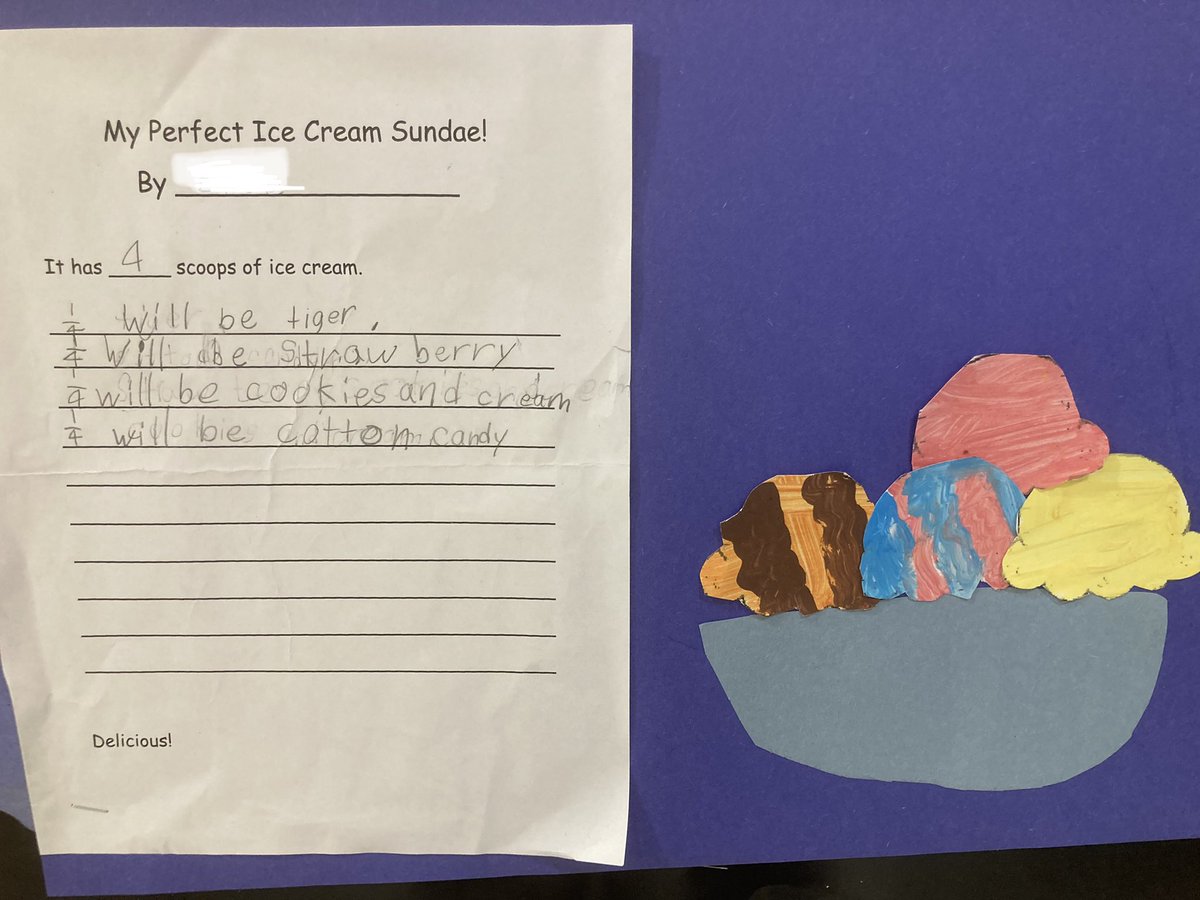 My Perfect Ice Cream Sundae!
By
It has 4 scoops of ice cream.
1/4 will be tiger.
1/4 will be Strawberry
1/4 will be cookies and cream
1/4 will be cotton candy
Delicious!